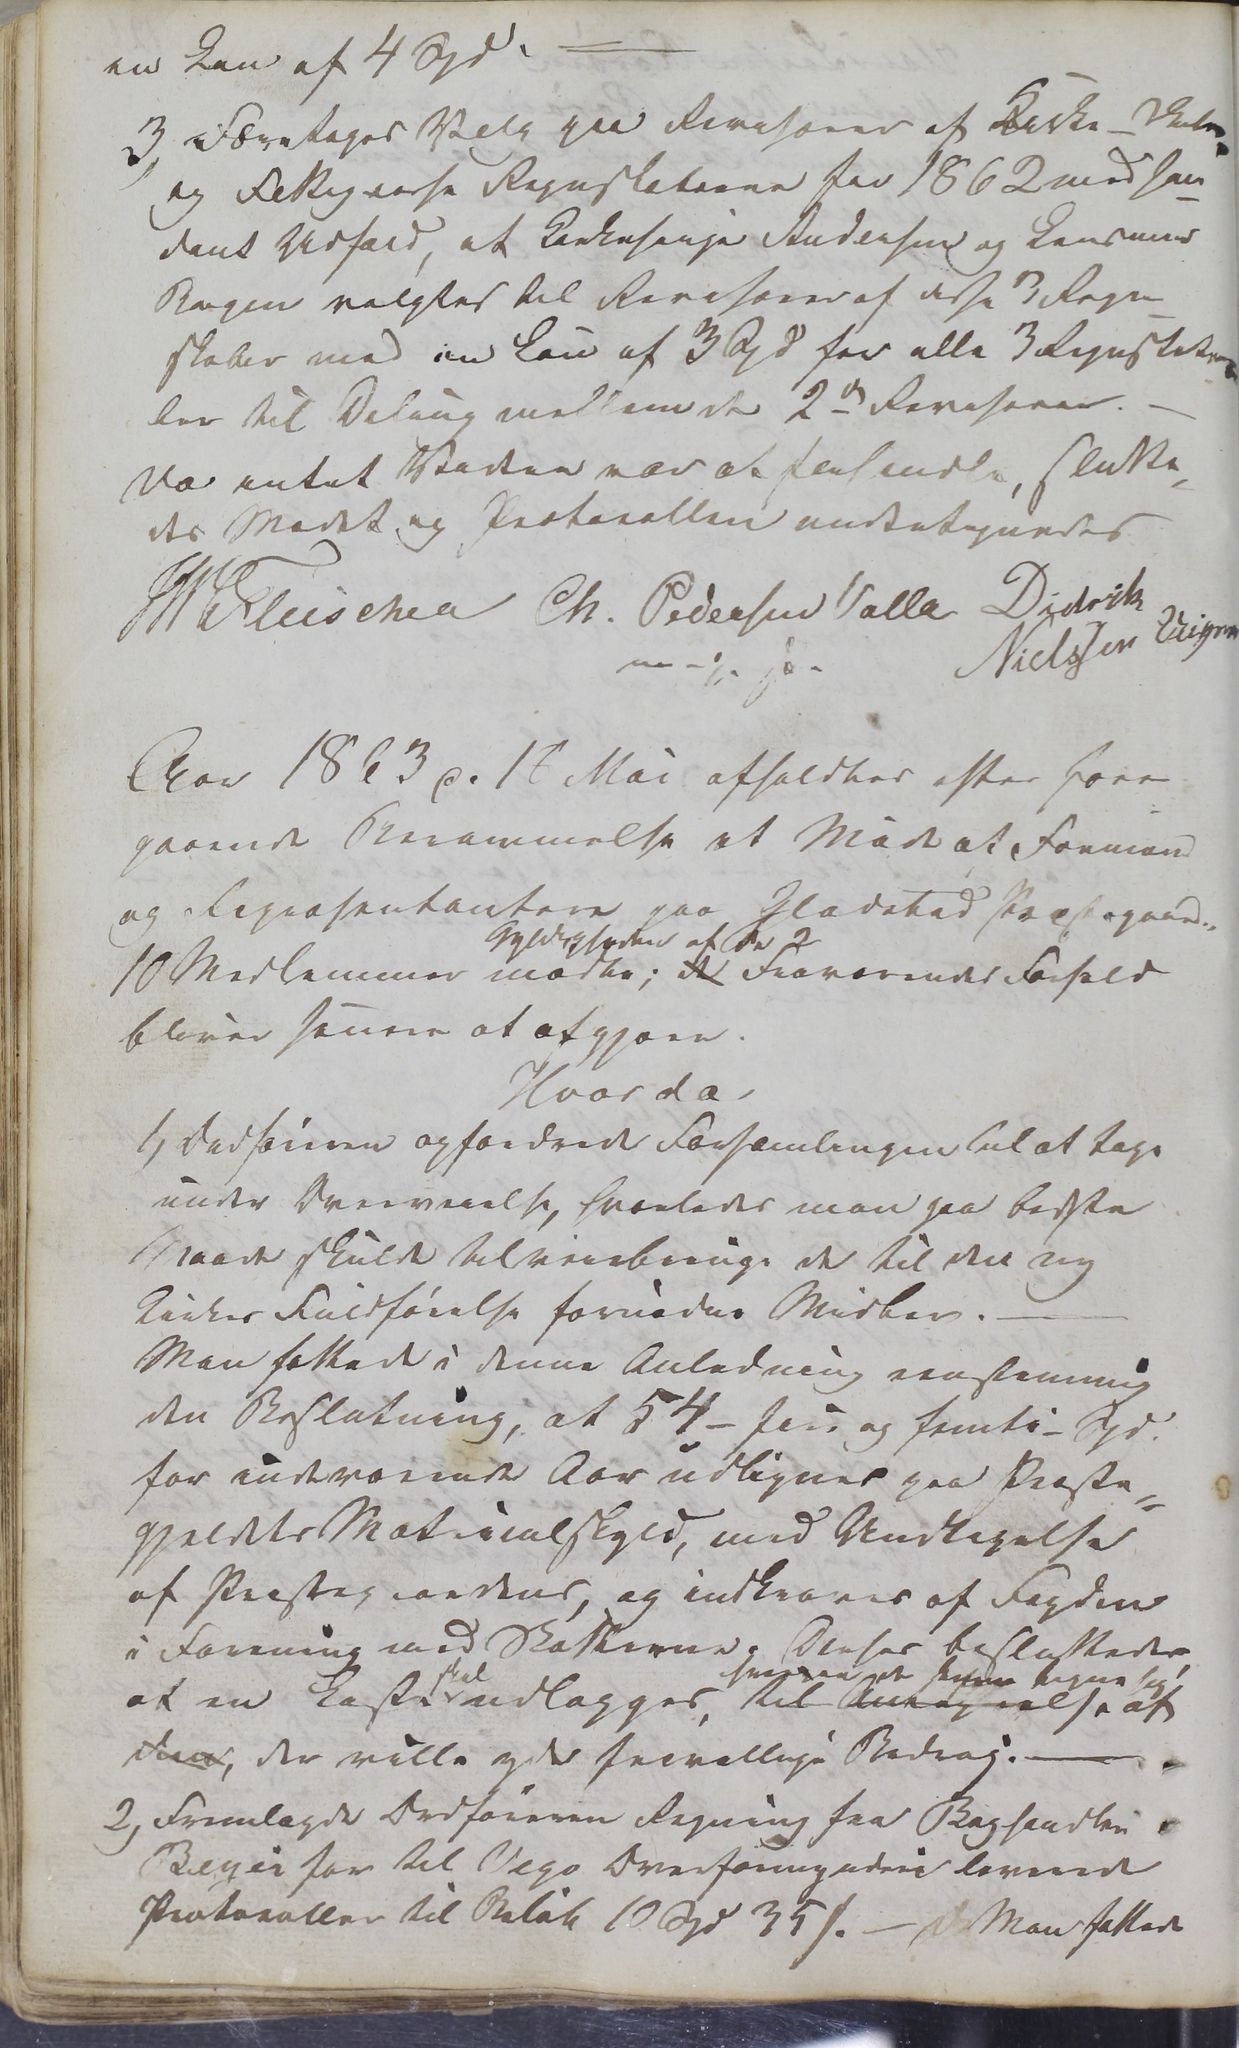 en Løn af 4 Spd.
3, Foretoges Valg paa Revisorer af Kirke-, Skole-
og Fattigvæsens Regnskaberne for 1862 med saa-
dant Udfald, at Kirkesanger Andersen og Lensmand
valgtes til Revisorer af disse 3 Regn-
skaber med en Løn af 3 Spd for alle 3 Regnskaber
til Deling mellem de 2de Revisorer. —
Da intet Videre var at forhandle, slutte-
des Mødet og Protocollen undertegnedes
Fleischer Ch. Pedersen Valla Didrik
m. p. P. Nielssen
Aar 1863 d. 18 Mai afholdtes efter fore-
gaaende Berammelse et Møde af Formænd
og Repræsentantere paa Gladstad Præstegaard.
Gyldigheden af de 2
10 Medlemmer mødte; de Fraværendes Forfald
bliver senere at afgjøre.
Hvorda
1, Ordføreren opfordrede Forsamlingen til at tage
under Overveielse, hvorledes man paa bedste
Maade skulde tilveiebringe de til den ny
Kirkes Fuldførelse fornødne Midler. —
Man fattede i denne Anledning eenstemmig
den Beslutning, at 54 - fire og femti - Spd.
for indeværende Aar udlignes paa Præste-
gjeldets Matriculskyld, med Undtagelse
af Præstegaardens, og indkræves af Fogden
i Forening med Skatterne. Derhos besluttedes,
skal hvorpaa de tegne sig
at en Liste udlægges, til af
dem, der ville yde frivillige Bidrag. —
2, Fremlagde Ordføreren Regning fra Boghandler
Beyer for til Vego Overformynderi leverede
Protocoller til Beløb 10 Spd 35 s. — Man fattede